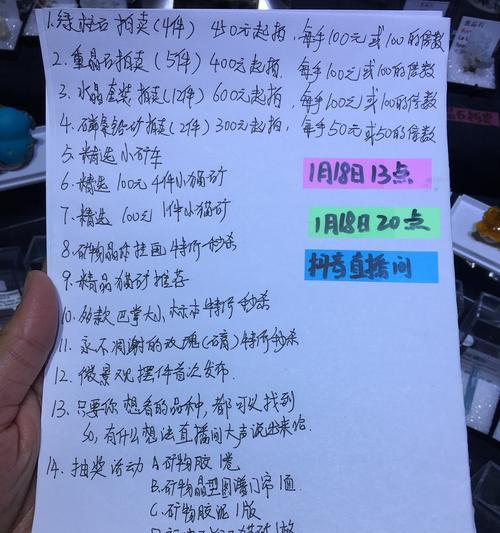 1.绿柱石拍卖(4件) 450元起拍, 每手100元或100的倍数
2.重晶石拍卖(5件) 400元起拍, 每手100元或100的倍数
3.水晶套装拍卖(12件) 600元起拍, 每手100元或100的倍数
4.磷氯铅矿拍卖(2件) 300元起拍, 每手50元或50的倍数
5.精选小矿车
6.精选100元4件小猫矿
7.精选100元1件小猫矿
8.矿物晶体挂画特价秒杀
9.精品猫矿推荐
10.多款巴掌大小标本特价秒杀
11.永不凋谢的玫瑰(石膏)特价秒杀
12.微景观摆件首次发布.
13.只要你想看的品种,都可以找到
So,有什么想法直播间大声说出来哈
14.抽奖活动 A矿物胶1卷
B.矿物晶型图谱门帘1道
C.矿物胶泥1版
1月18日13点
1月18日20点
抖音直播间